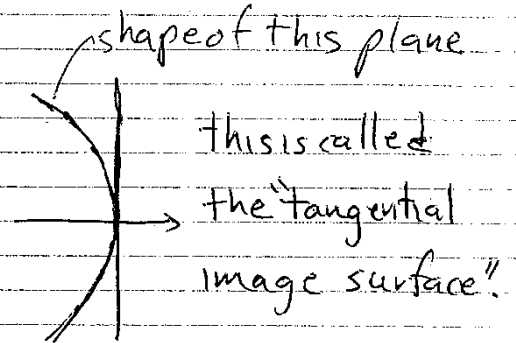 shape of this plane
this is called
the "tangential
image surface".